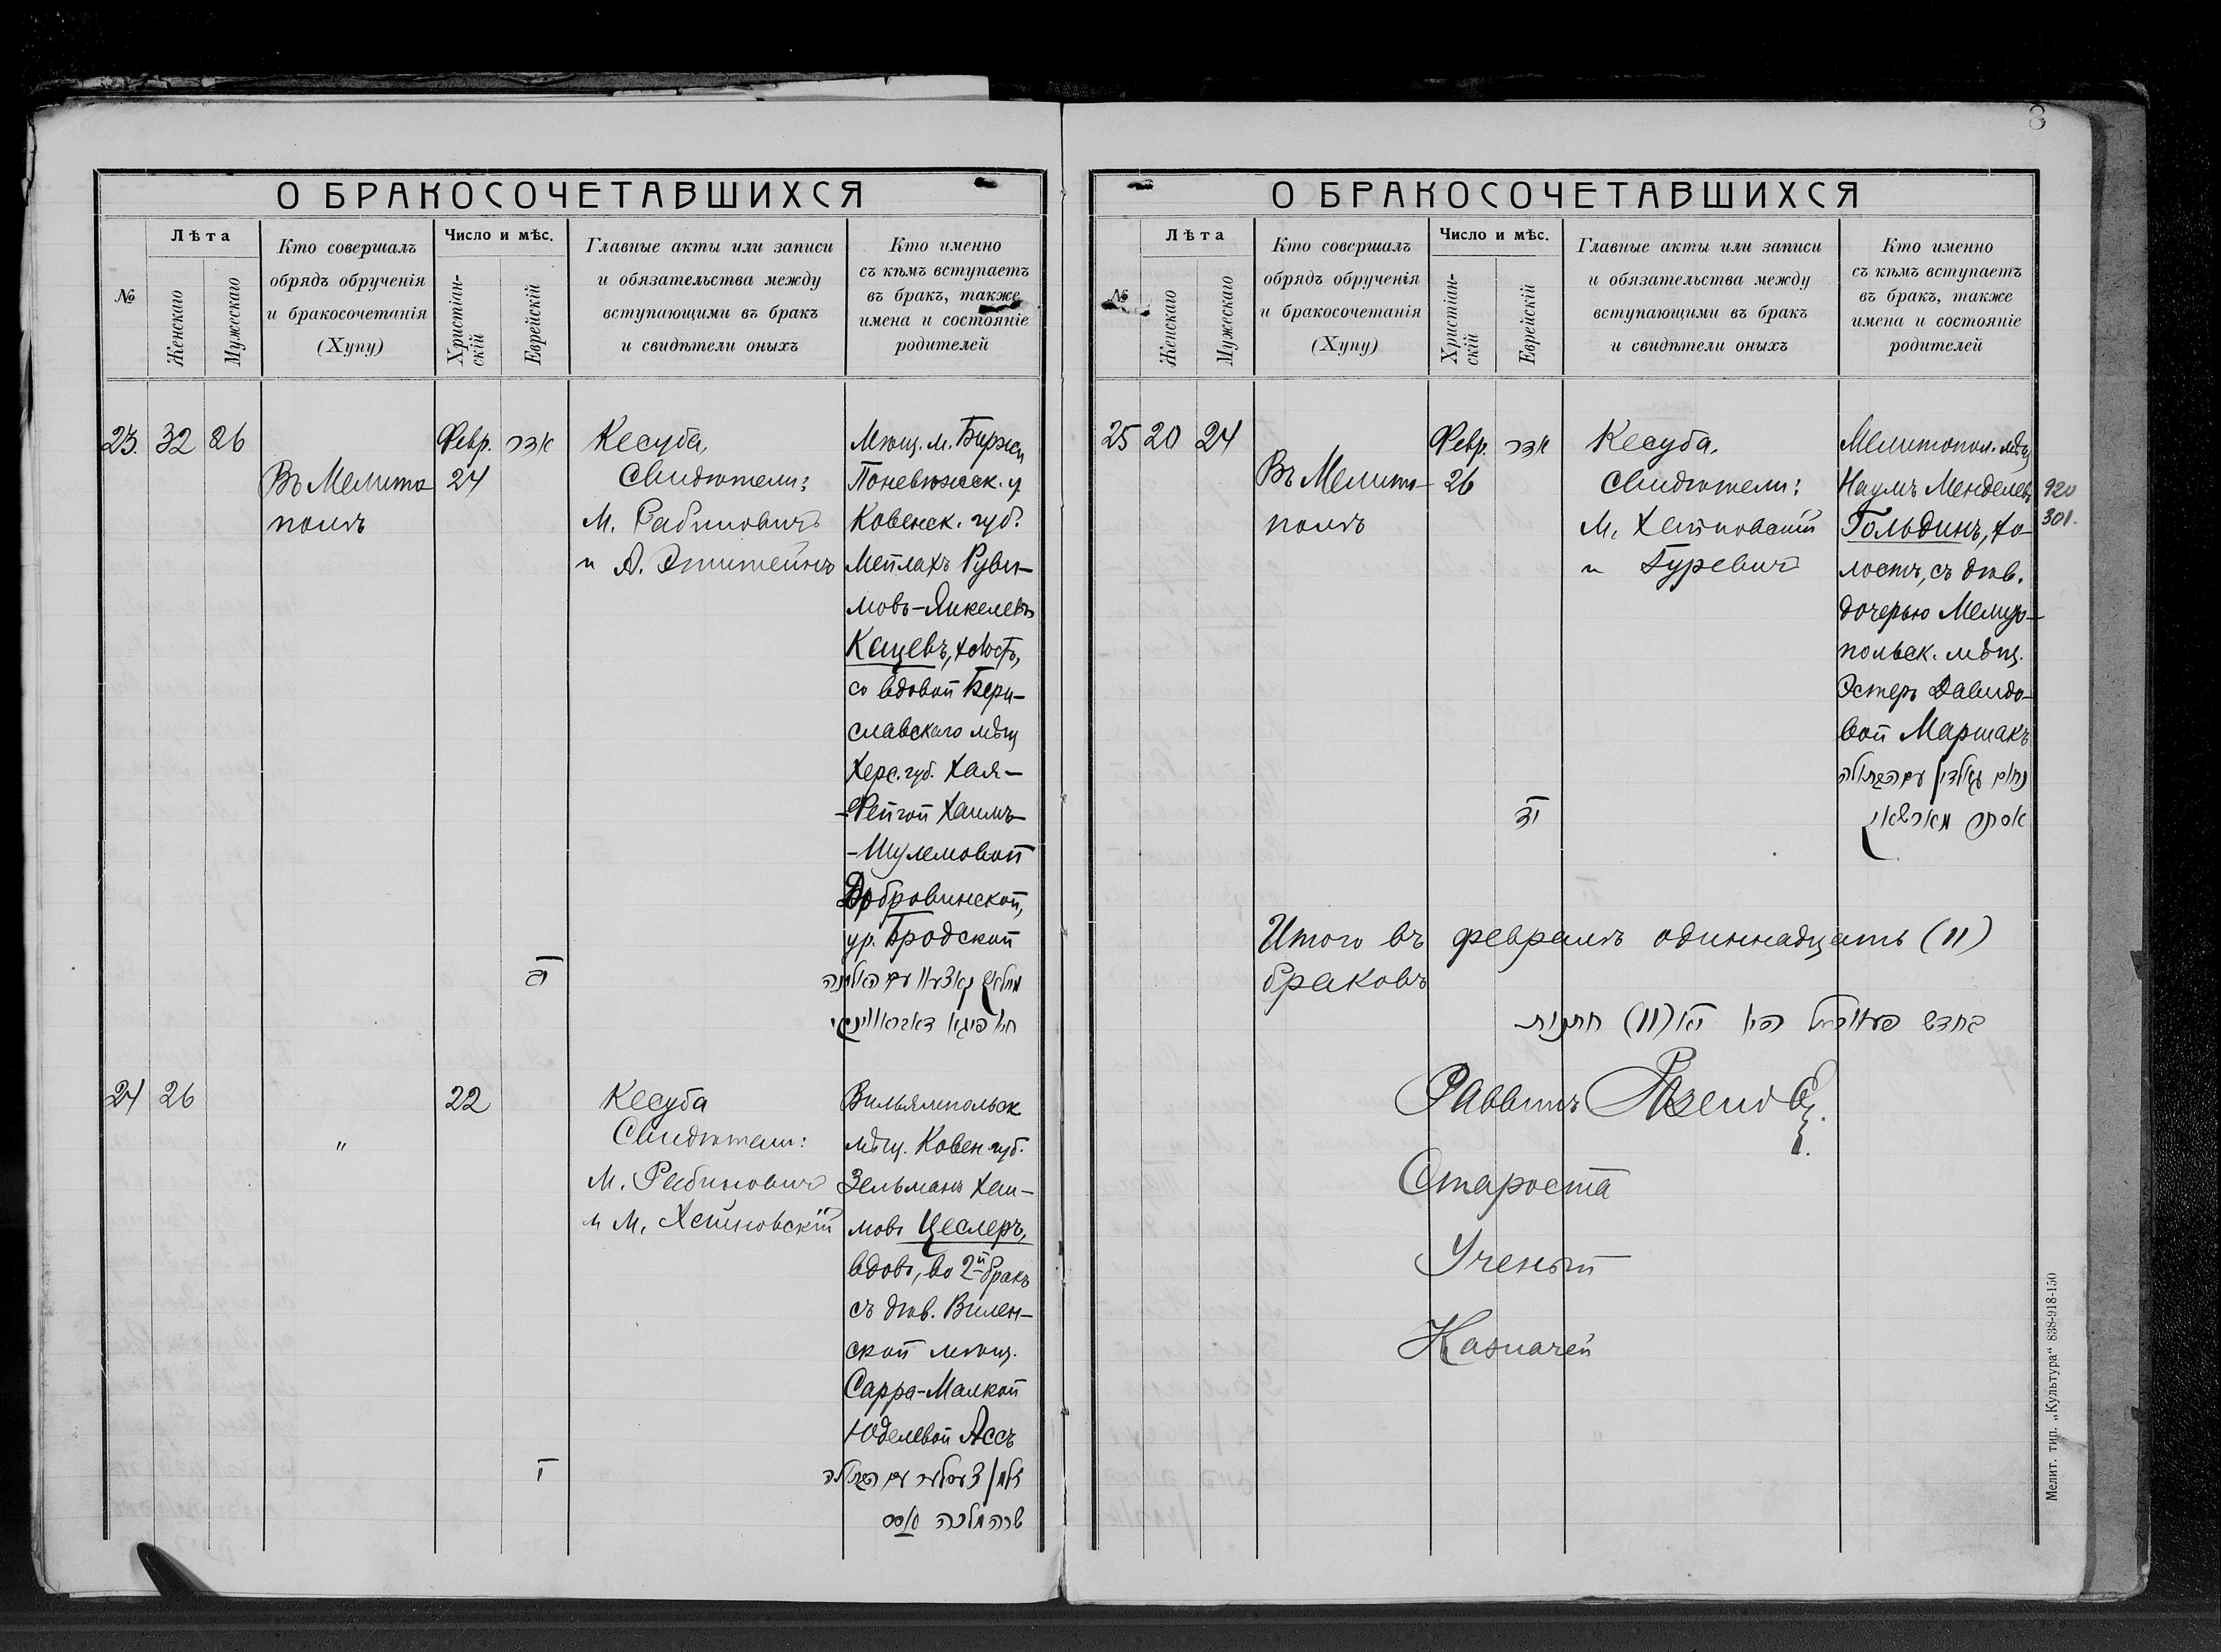 О БРАКОСОЧЕТАВШИХСЯ
№
Лѣта
Женскаго
Мужескаго
Кто совершалъ
обрядъ обрученія
и бракосочетанія
(Хупу)
Число и мѣс.
Христіан-
скій
Еврейскій
Главные акты или записи
и обязательства между
вступающими въ бракъ
и свидѣтели оныхъ
Кто именно
съ кѣмъ вступаетъ
въ бракъ, также
имена и состояніе
родителей
23. 32 26
Въ Мелито-
полѣ
Февр.
24
אדר
יח
Кесуба,
Свидѣтели:
М. Рабиновичъ
и А. Эпштейнъ
Мѣщ. м. Биржи
Поневѣжск. у.
Ковенск. губ.
Мейлахъ Руви-
мовъ-Янкелевъ
Кацевъ, холост,
со вдовой Бери-
славскаго мѣщ
Херс. губ. Хая-
-Фейгой Хаимъ-
-Шулемовой
Добровинской,
ур. Бродской
מלאך קאצעוו עם האלמנה
חי' פיגא דאבראווינסקי
24 26
"
22
י
Кесуба
Свидѣтели:
М. Рабиновичъ
и М. Хейновскій
Вильямпольск
мѣщ. Ковен. губ.
Зельманъ Хаи-
мовъ Цеслеръ,
вдовъ, во 2й бракъ
съ дѣв. Вилен-
ской мѣщ.
Сарра-Малкой
Юделевой Ассъ
זלמן צעסלער עם הבתולה
שרה מלכה אסס
8
О БРАКОСОЧЕТАВШИХСЯ
№
Лѣта
Женскаго
Мужескаго
Кто совершалъ
обрядъ обрученія
и бракосочетанія
(Хупу)
Число и мѣс.
Христіан-
скій
Еврейскій
Главные акты или записи
и обязательства между
вступающими въ бракъ
и свидѣтели оныхъ
Кто именно
съ кѣмъ вступаетъ
въ бракъ, также
имена и состояніе
родителей
25 20 24
Въ Мелито-
полѣ
Февр.
26
אדר
יד
Кесуба.
Свидѣтели:
М. Хейновскій
и Гуревичъ
Мелитопол. мѣщ
Наумъ Менделевъ
Гольдинъ, хо-
лостъ, съ дѣв.
дочерью Мелито-
польск. мѣщ.
Эстеръ Давидо-
вой Маршакъ
נחום גאלדין עם הבתולה
אסתר מארשאק
920
301.
Итого въ февралѣ одиннадцать (11)
браковъ
בחדש פעווראל היו יא (11) חתונות
Раввинъ
Староста
Ученый
Казначей
Мелит. тип. „Культура“ 838-918-150